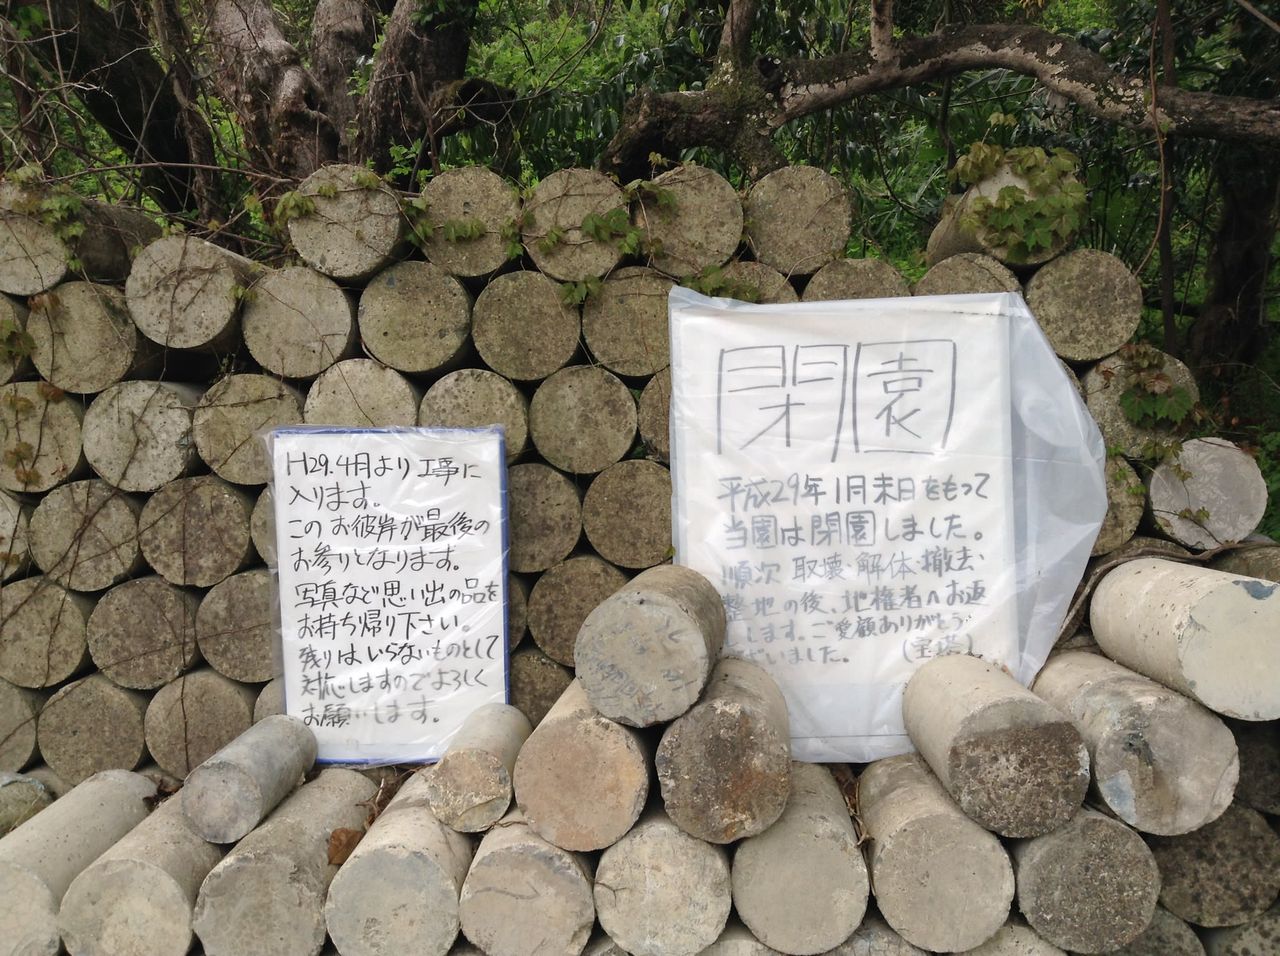 H29.4月より工事に
入ります。
このお彼岸が最後の
お参りとなります。
写真など思い出の品を
お持ち帰り下さい。
残りはいらないものとして
対応しますのでよろしく
お願いします。
閉園
平成29年1月末日をもって
当園は閉園しました。
順次取壊・解体・撤去、
整地の後、地権者へお返
しします。ご愛顧ありがとう
ございました。(宝塔)